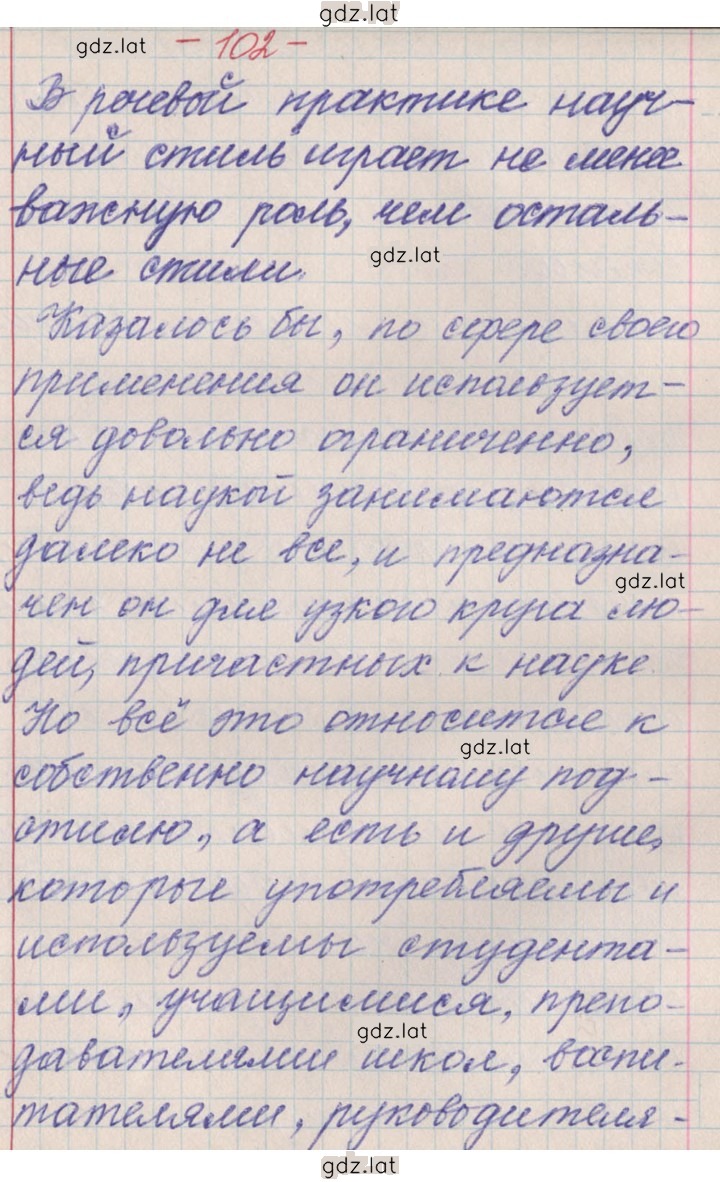 gdz.lat
gdz.lat
- 102 -
В речевой практике науч-
ный стиль играет не менее
важную роль, чем осталь-
gdz.lat
ные стили.
Казалось бы, по сфере своего
применения он использует-
ся довольно ограниченно,
ведь наукой занимаются
далеко не все, и предназна-
gdz.lat
чен он для узкого круга лю-
дей, причастных к науке.
Но всё это относится к
gdz.lat
собственно научному под-
стилю, а есть и другие,
которые употребляемы и
используемы студента-
ми, учащимися, препо-
gdz.lat
давателями школ, воспи-
тателями, руководителя-
gdz.lat